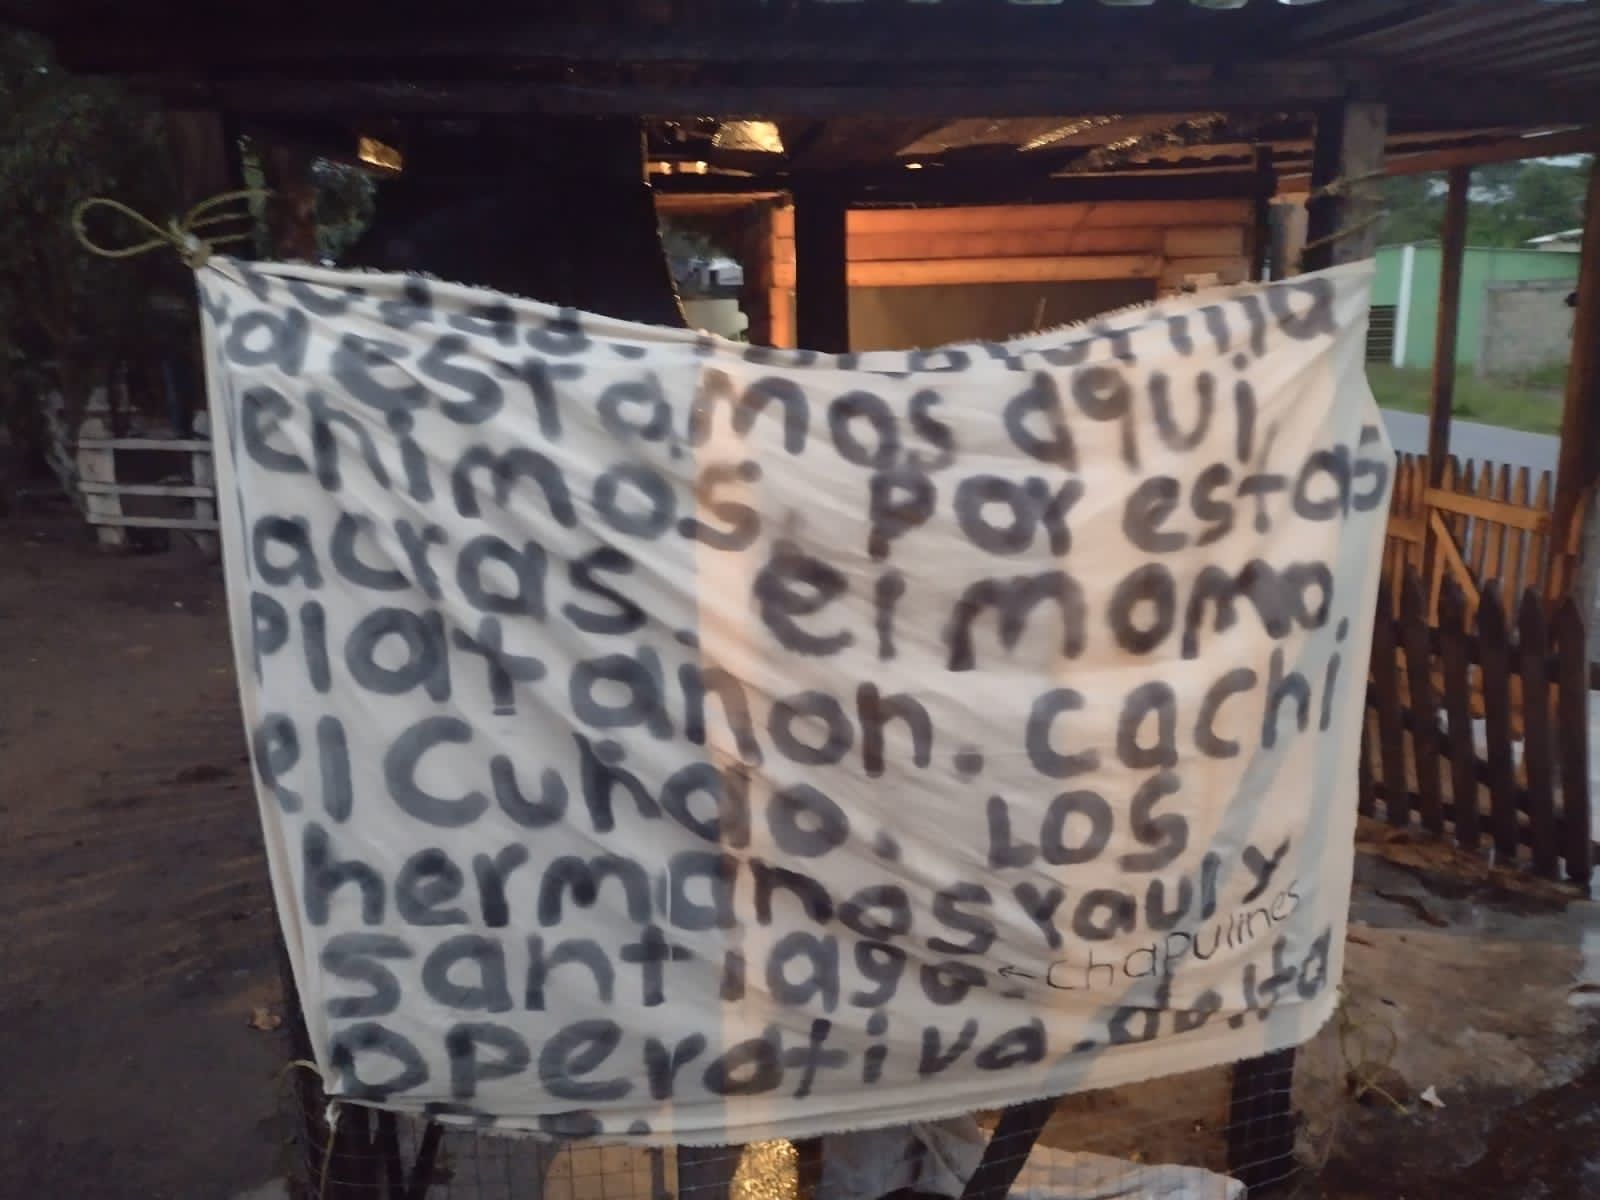 ya estamos aqui,
enimos por estas
lacras. el momo
Platanon. cachi
el Cuñao. Los
hermanos Yauri y
santiago. ← chapulines
operativa delta